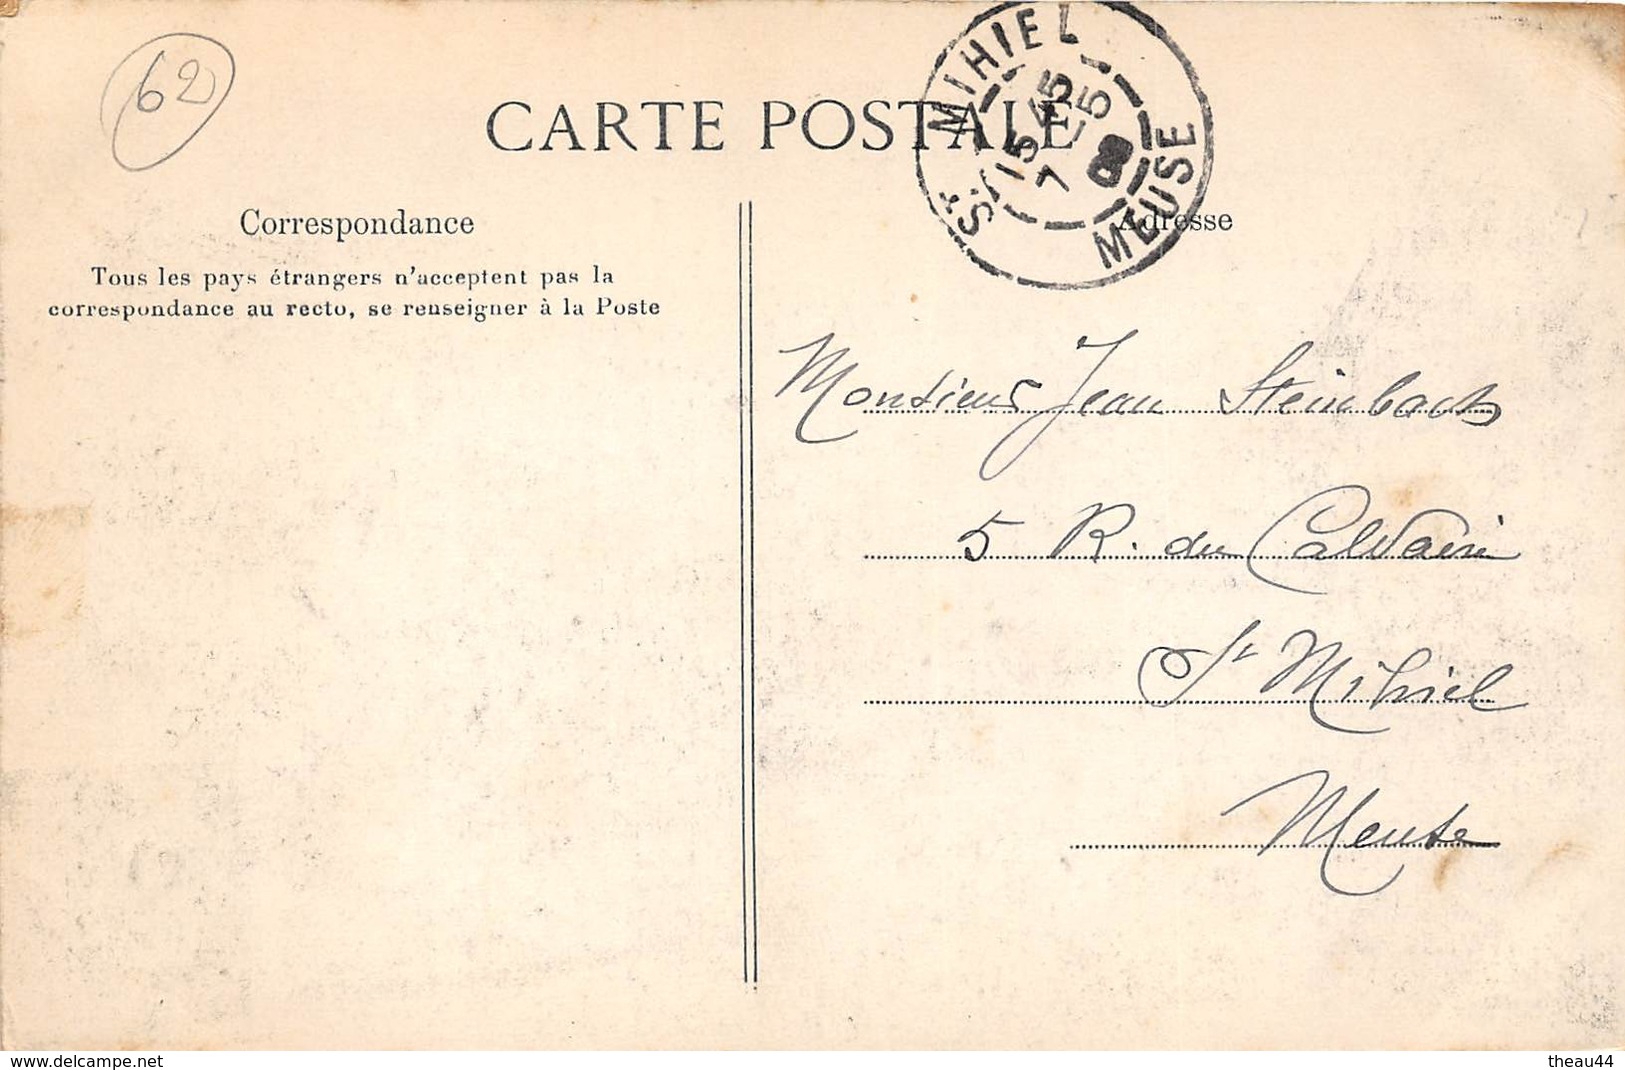 62
CARTE POSTALE
ST MIHIEL
15 45
7 -5
08
MEUSE
Correspondance
Tous les pays étrangers n'acceptent pas la
correspondance au recto, se renseigner à la Poste
Adresse
Monsieur Jean Steinbach
5 R. du Calvaire
St Mihiel
Meuse
www.delcampe.net
theau44